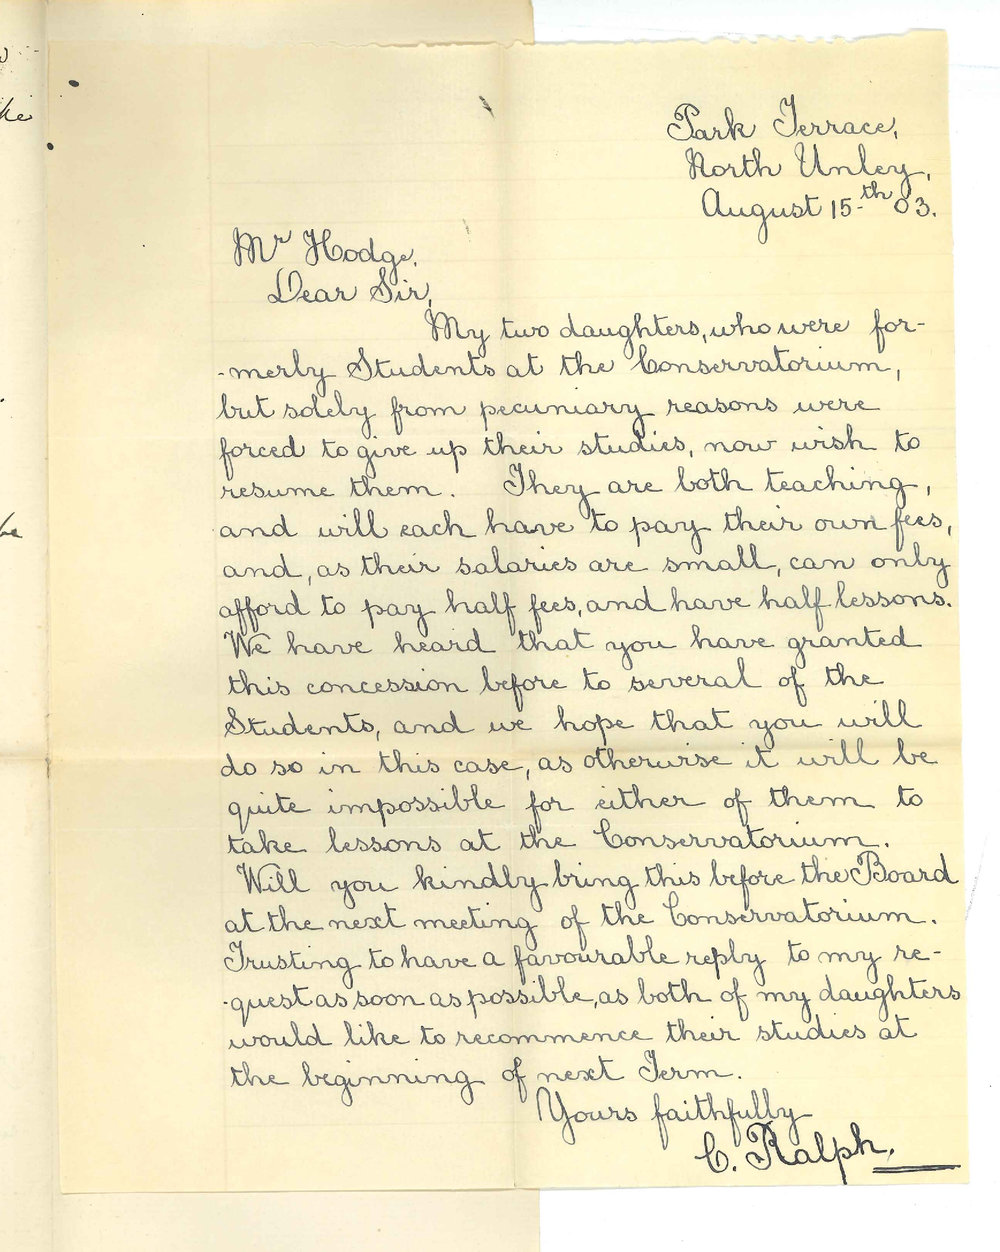 Park Terrace,
North Unley,
August 15th 03.
Mr Hodge.
Dear Sir,
My two daughters, who were for-
-merly Students at the Conservatorium,
but solely from pecuniary reasons were
forced to give up their studies, now wish to
resume them. They are both teaching,
and will each have to pay their own fees,
and, as their salaries are small, can only
afford to pay half fees, and have half lessons.
We have heard that you have granted
this concession before to several of the
Students, and we hope that you will
do so in this case, as otherwise it will be
quite impossible for either of them to
take lessons at the Conservatorium.
Will you kindly bring this before the Board
at the next meeting of the Conservatorium.
Trusting to have a favourable reply to my re-
-quest as soon as possible, as both of my daughters
would like to recommence their studies at
the beginning of next Term.
Yours faithfully
C. Ralph.